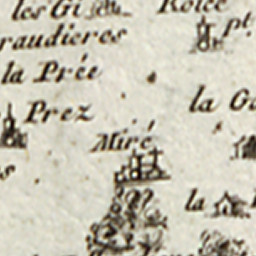 les Gi
raudieres
pt.
la Prée
Prez
la Ga
Miré
s
la